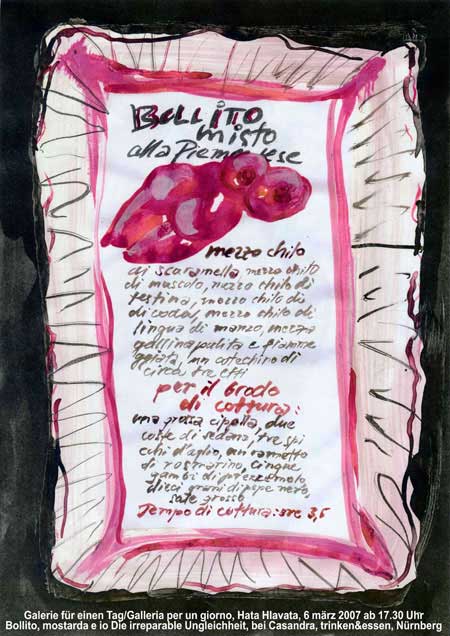 BOLLITO
misto
alla Piemontese
mezzo chilo
di scaramella, mezzo chilo
di muscolo, mezzo chilo di
testina, mezzo chilo di
di coda, mezzo chilo di
lingua di manzo, mezza
gallina pulita e fiamme
ggiata, un cotechino di
circa tre etti
per il brodo
di cottura:
una grossa cipolla, due
coste di sedano, tre spi
cchi d'aglio, un rametto
di rosmarino, cinque
gambi di prezzemolo
dieci grani di pepe nero,
sale grosso
Tempo di cottura: ore 3,5
Galerie für einen Tag/Galleria per un giorno, Hata Hlavata, 6 märz 2007 ab 17.30 Uhr
Bollito, mostarda e io Die irreparable Ungleichheit, bei Casandra, trinken&essen, Nürnberg